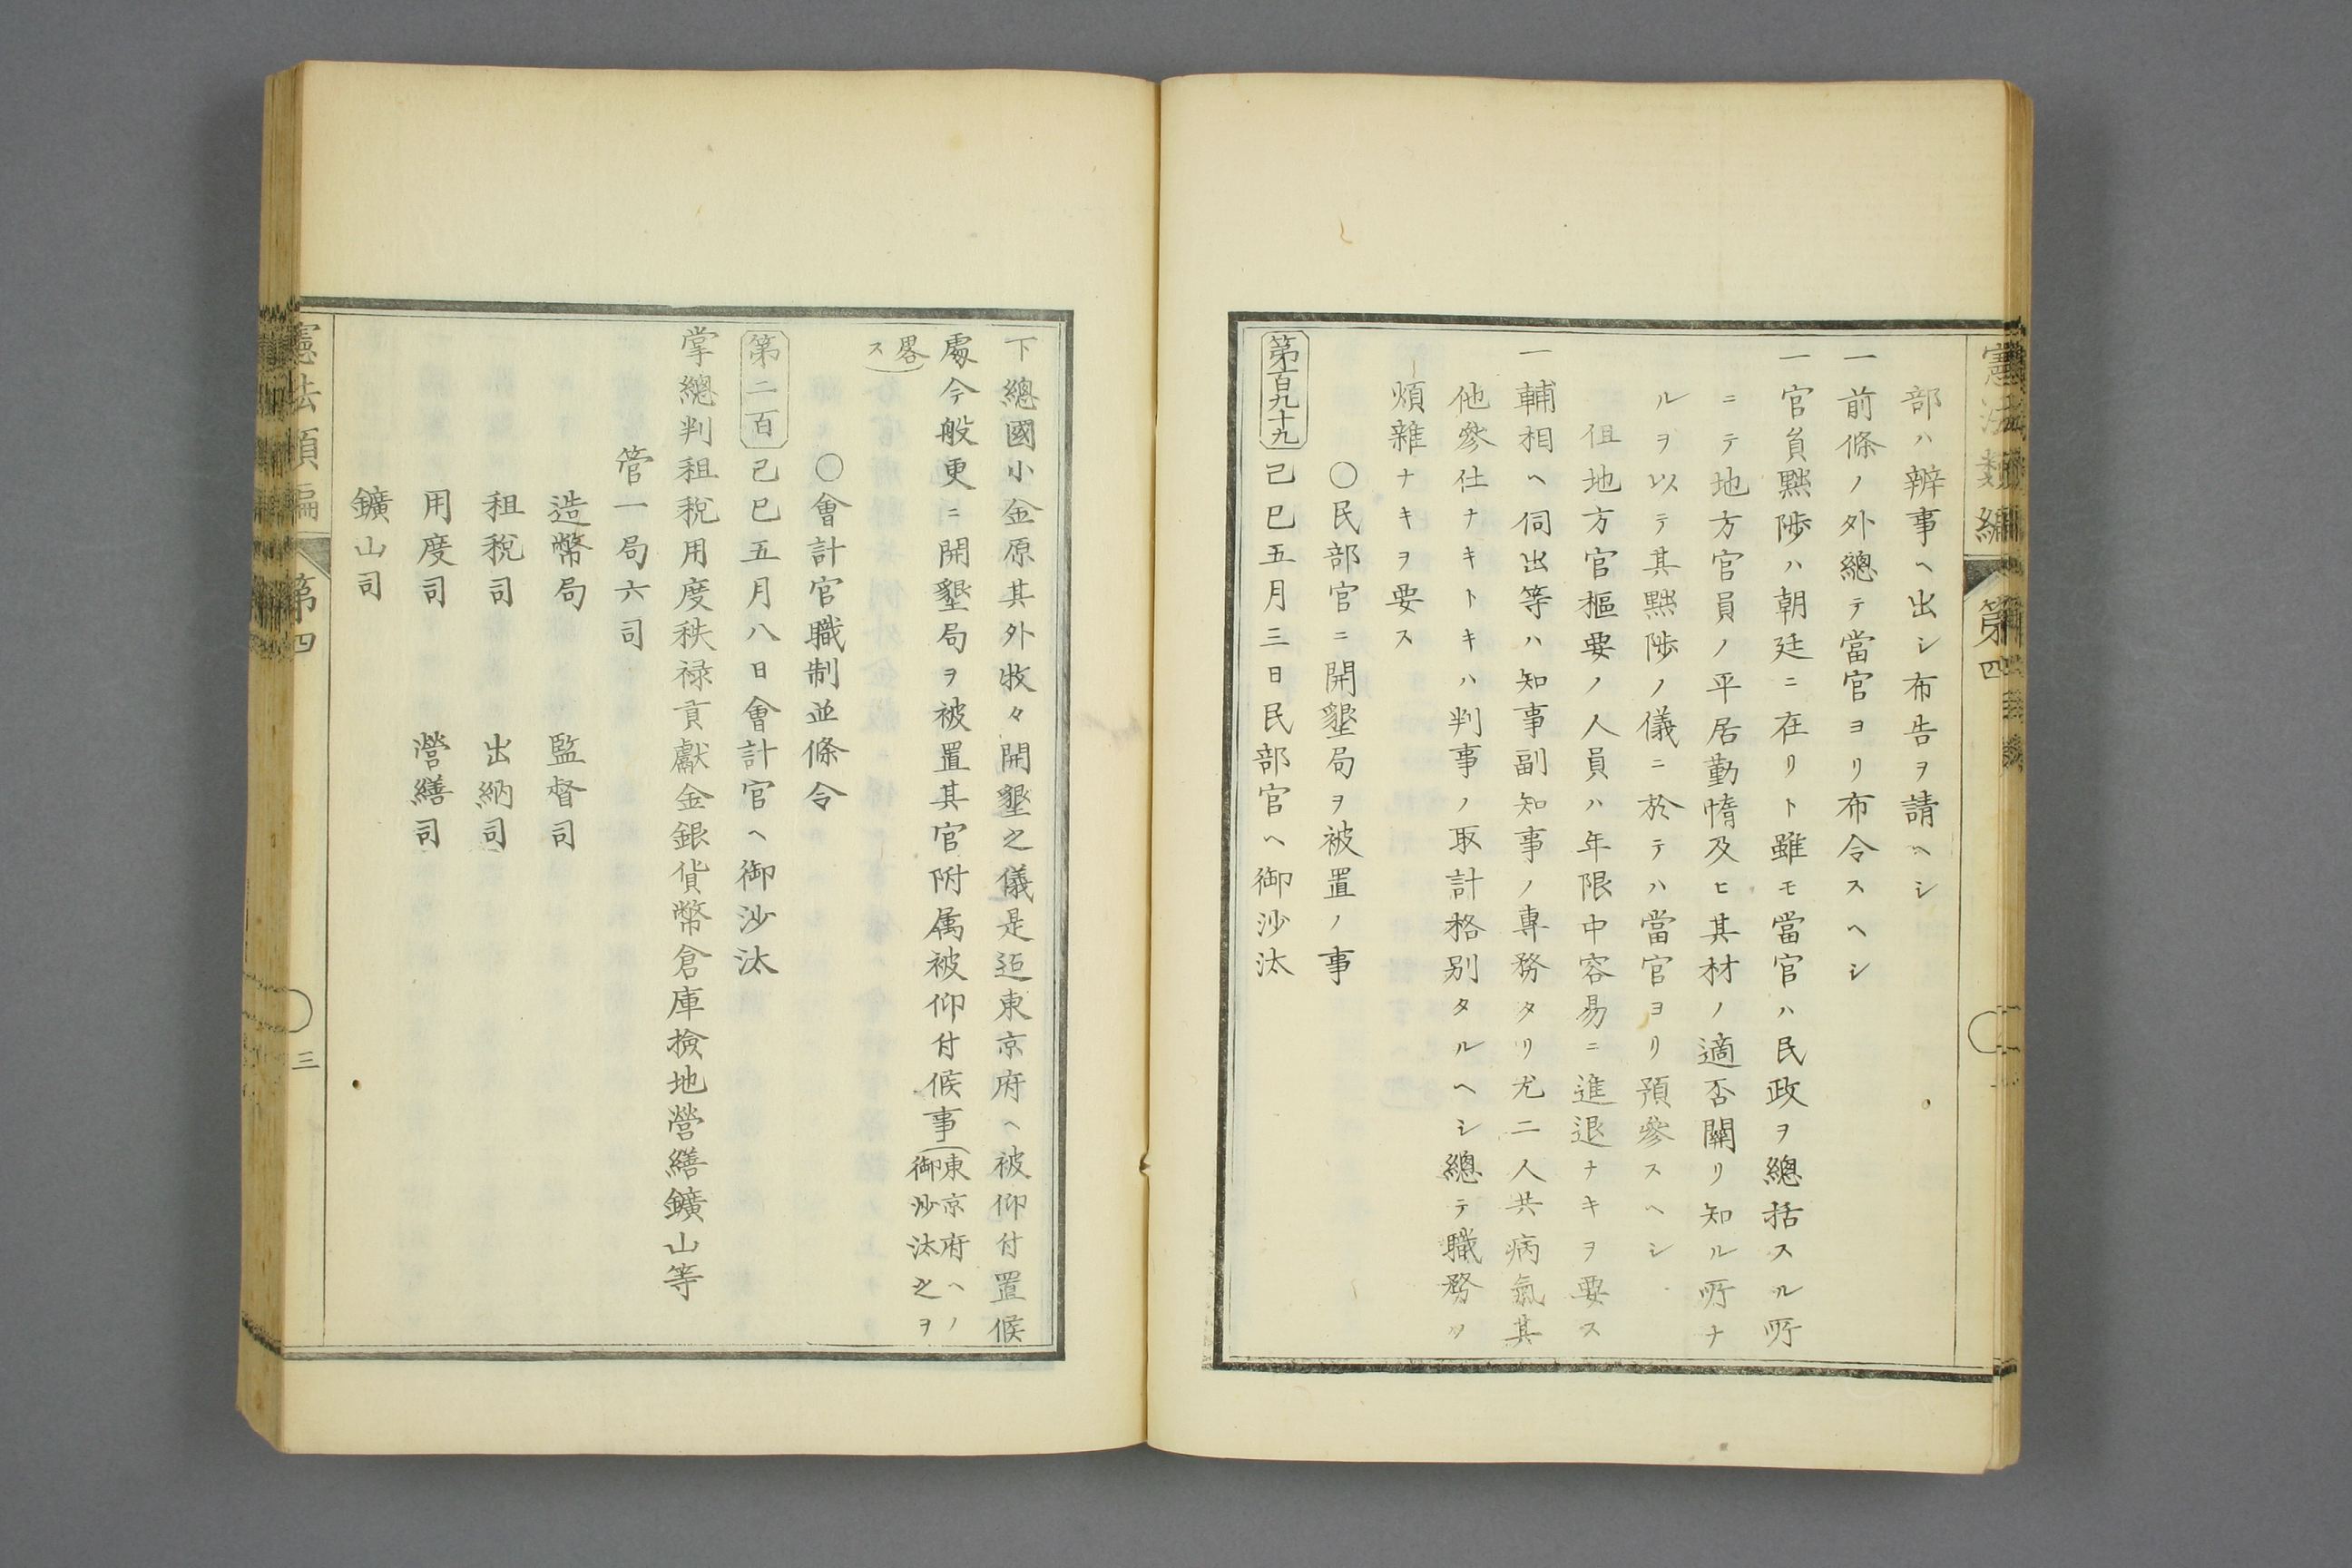 憲法類編 第四
部ハ辨事ヘ出シ布告ヲ請ヘシ
一前條ノ外總テ當官ヨリ布令スヘシ
一官員黙陟ハ朝廷ニ在リト雖モ當官ハ民政ヲ總括スル所
ニテ地方官員ノ平居勤惰及ヒ其材ノ適否關リ知ル所ナ
ルヲ以テ其黙陟ノ儀ニ於テハ當官ヨリ預參スヘシ
但地方官樞要ノ人員ハ年限中容易ニ進退ナキヲ要ス
一輔相ヘ伺出等ハ知事副知事ノ專務タリ尤二人共病氣其
他參仕ナキトキハ判事ノ取計格别タルヘシ總テ職務ノ
煩雜ナキヲ要ス
〇民部官ニ開墾局ヲ被置ノ事
第百九十九 己巳五月三日民部官ヘ御沙汰
下總國小金原其外牧々開墾之儀是迄東京府ヘ被仰付置候
處今般更ニ開墾局ヲ被置其官附属被仰付候事(東京府ヘノ
御沙汰之ヲ
畧ス)
〇會計官職制並條令
第二百 己巳五月八日會計官ヘ御沙汰
掌總判租稅用度秩禄貢獻金銀貨幣倉庫撿地營繕鑛山等
管一局六司
造幣局 監督司
租稅司 出納司
用度司 營繕司
鑛山司
憲法類編 第四 三